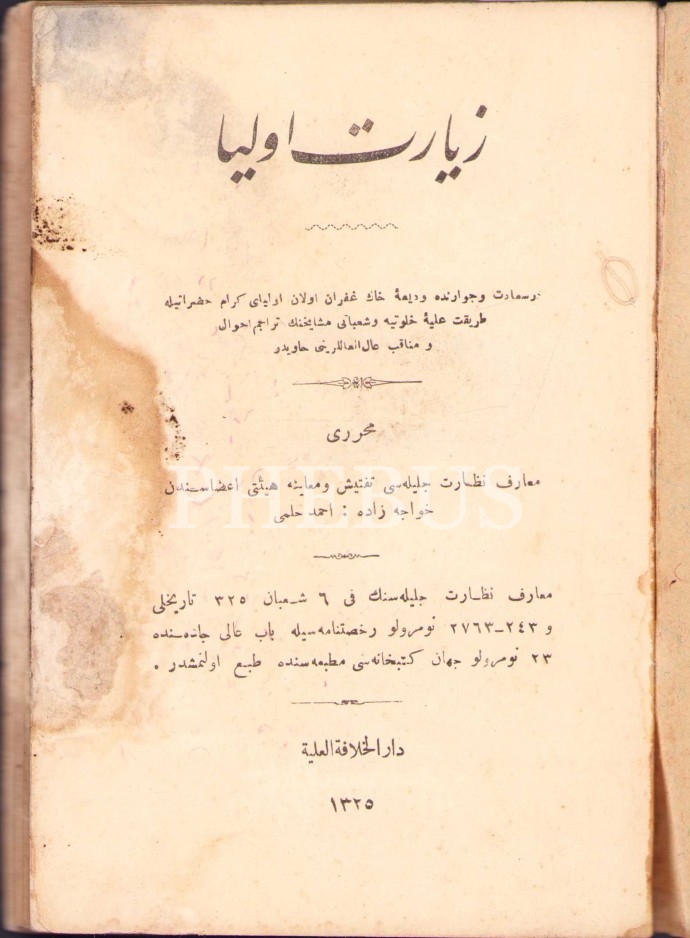 زیارت اولیا
درسعادت وجوارنده ودیعهٔ خاك غفران اولان اولیای كرام حضراتیله
طریقت علیهٔ خلوتیه وشعبانی مشایخنك تراجم احوال
و مناقب عال‌انعاللرینی حاویدر
محرری
معارف نظارت جلیله‌سی تفتیش ومعاینه هیئتی اعضاسندن
خواجه زاده : احمد حلمی
PHEBUS
معارف نظارت جلیله‌سنك فی ٦ شعبان ٣٢٥ تاریخلی
و ٢٤٣–٢٧٦٣ نومرولو رخصتنامه‌سیله باب عالی جاده‌سنده
٢٣ نومرولو جهان كتبخانه‌سی مطبعه‌سنده طبع اولنمشدر .
دار الخلافة العلیة
١٣٢٥